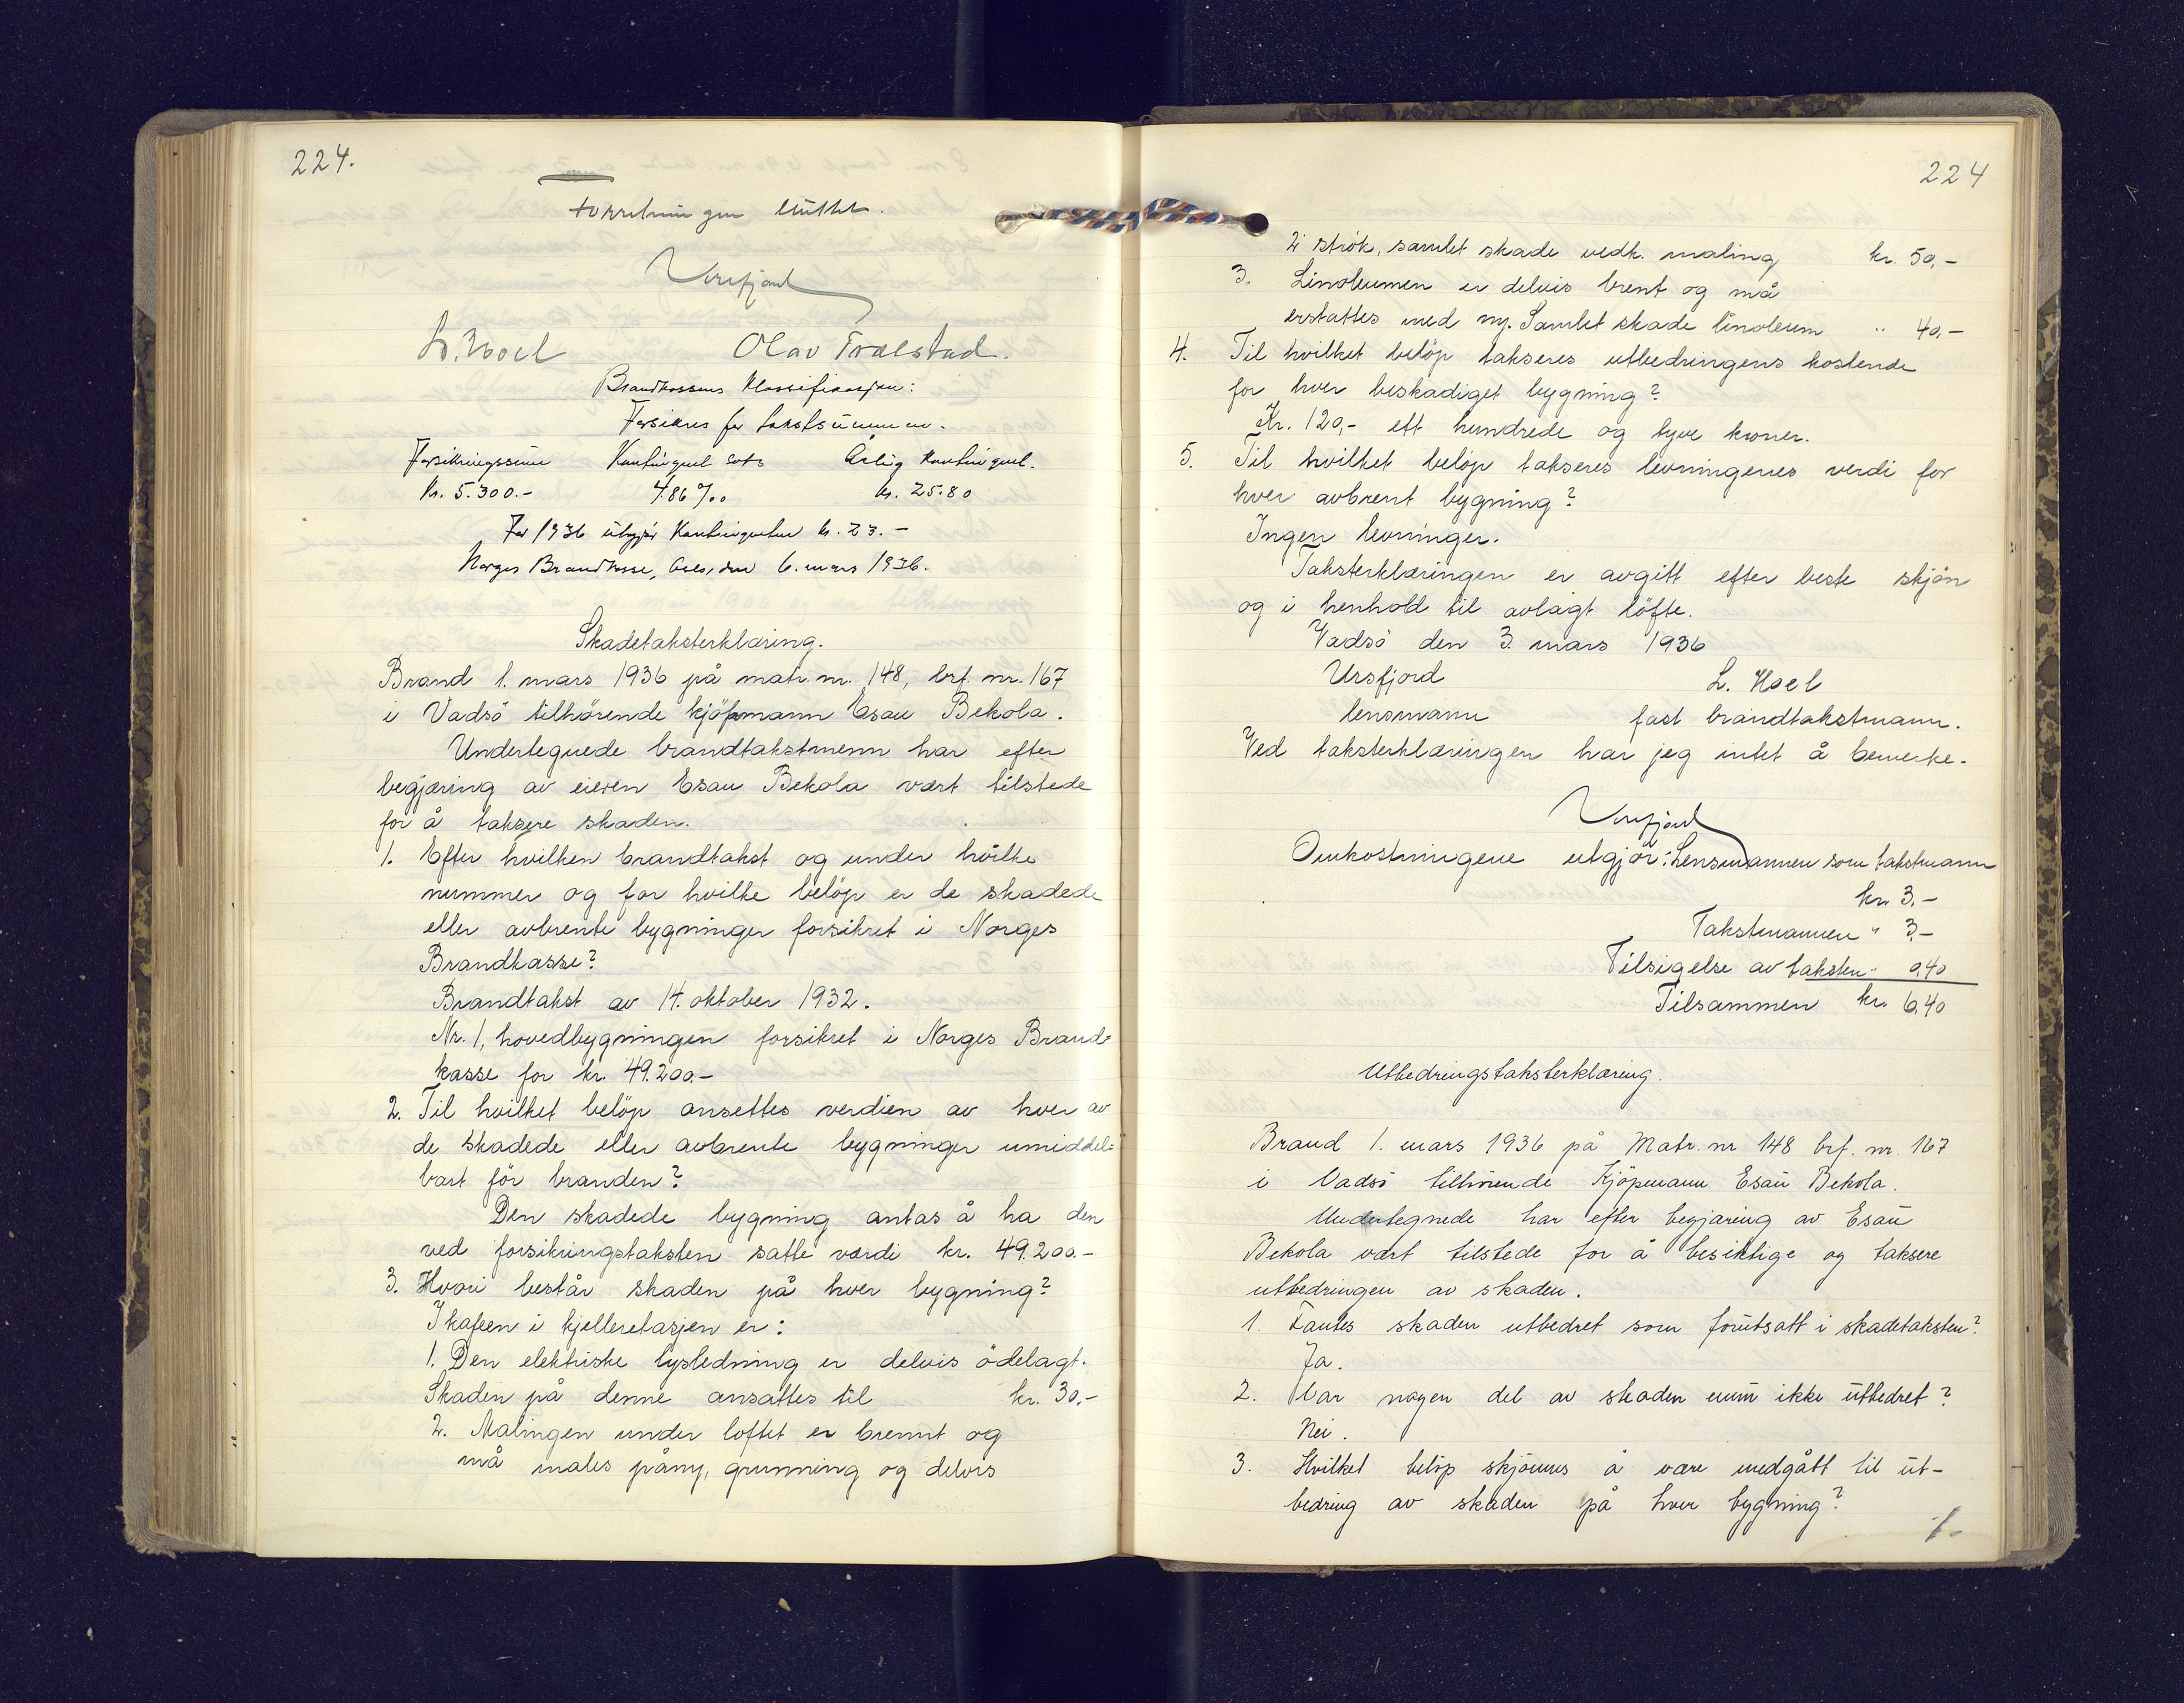 224.
Forretningen sluttet.
Ursfjord
L. Hoel Olav Trælstad.
Brandkassens Klassifikasjon:
Forsikres for takstsummen.
Forsikringssum Kontingent sats Årlig Kontingent.
Kr. 5.300.- 4.86 ‰ kr. 25.80
For 1936 utgjör Kontingenten kr. 23.-
Norges Brandkasse, Oslo, den 6. mars 1936.
Skadetaksterklæring.
Brand 1. mars 1936 på matr. nr. 148, brf. nr. 167
i Vadsö tilhörende kjöpmann Esau Bekola.
Undertegnede brandtakstmenn har efter
begjæring av eieren Esau Bekola vært tilstede
for å taksere skaden.
1. Efter hvilken brandtakst og under hvilke
nummer og for hvilke belöp er de skadede
eller avbrente bygninger forsikret i Norges
Brandkasse?
Brandtakst av 14. oktober 1932.
Nr. 1, hovedbygningen forsikret i Norges Brand-
kasse for kr. 49.200.-
2. Til hvilket belöp ansettes verdien av hver av
de skadede eller avbrente bygninger umiddel-
bart för branden?
Den skadede bygning antas å ha den
ved forsikringstaksten satte verdi kr. 49.200.-
3. Hvori består skaden på hver bygning?
I kafeen i kjelleretasjen er:
1. Den elektriske lysledning er delvis ödelagt.
Skaden på denne ansattes til kr. 30,-
2. Malingen under loftet er brennt og
må males påny, grunning og delvis
224
2 strök, samlet skade vedk. maling kr. 50,-
3. Linoleumen er delvis brent og må
erstattes med ny. Samlet skade linoleum " 40,-
4. Til hvilket belöp takseres utbedringens kostende
for hver beskadiget bygning?
Kr. 120,- ett hundrede og tyve kroner.
5. Til hvilket belöp takseres levningenes verdi for
hver avbrent bygning?
Ingen levninger.
Taksterklæringen er avgitt efter beste skjön
og i henhold til avlagt löfte.
Vadsö den 3. mars 1936
Ursfjord L. Hoel
lensmann fast brandtakstmann.
Ved taksterklæringen har jeg intet å bemerke.
Ursfjord
Omkostningene utgjör: Lensmannen som takstmann
kr. 3.-
Takstmannen " 3,-
Tilsigelse av taksten " 0,40
Tilsammen kr. 6,40
Utbedringstaksterklæring.
Brand 1. mars 1936 på Matr. nr 148 brf. nr. 167
i Vadsö tilhörende Kjöpmann Esau Bekola.
Undertegnede har efter begjæring av Esau
Bekola vært tilstede for å besiktige og taksere
utbedringen av skaden.
1. Fantes skaden utbedret som forutsatt i skadetaksten?
Ja.
2. Var nogen del av skaden ennu ikke utbedret?
Nei.
3. Hvilket belöp skjönnes å være medgått til ut-
bedring av skaden på hver bygning?